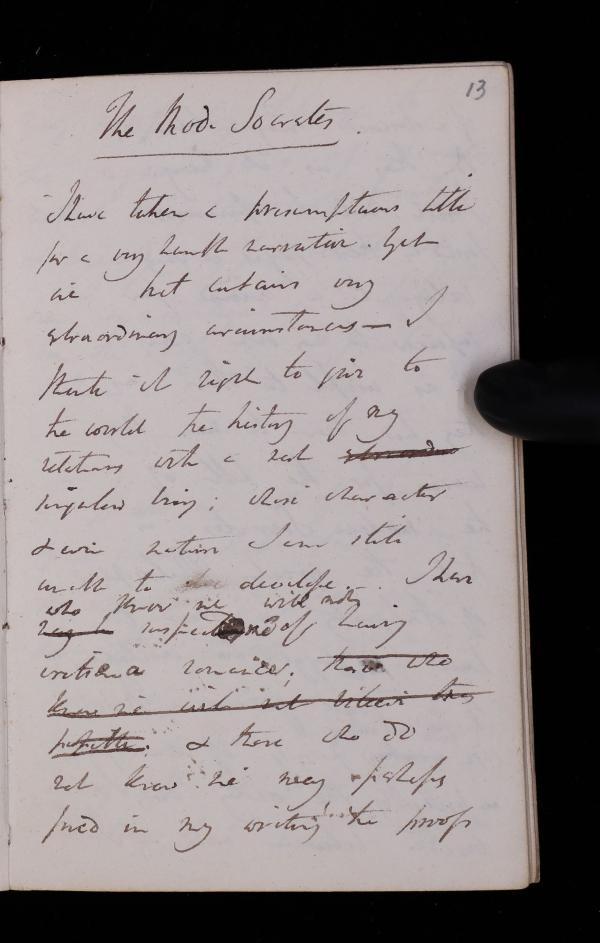 13
The Mod. Socrates.
I have taken a presumptuous title
for a very humble narrative. Yet
as that contains very
extraordinary circumstances — I
think it right to give to
the world the history of my
relations with a most extraordin
singular being; whose character
& even nature I am still
unable to develope. Those
who know me will not
suspect me of having
written a romance; those who
know me will not believe this
possible; & those who do
not know me may perhaps
find in my writing the proofs